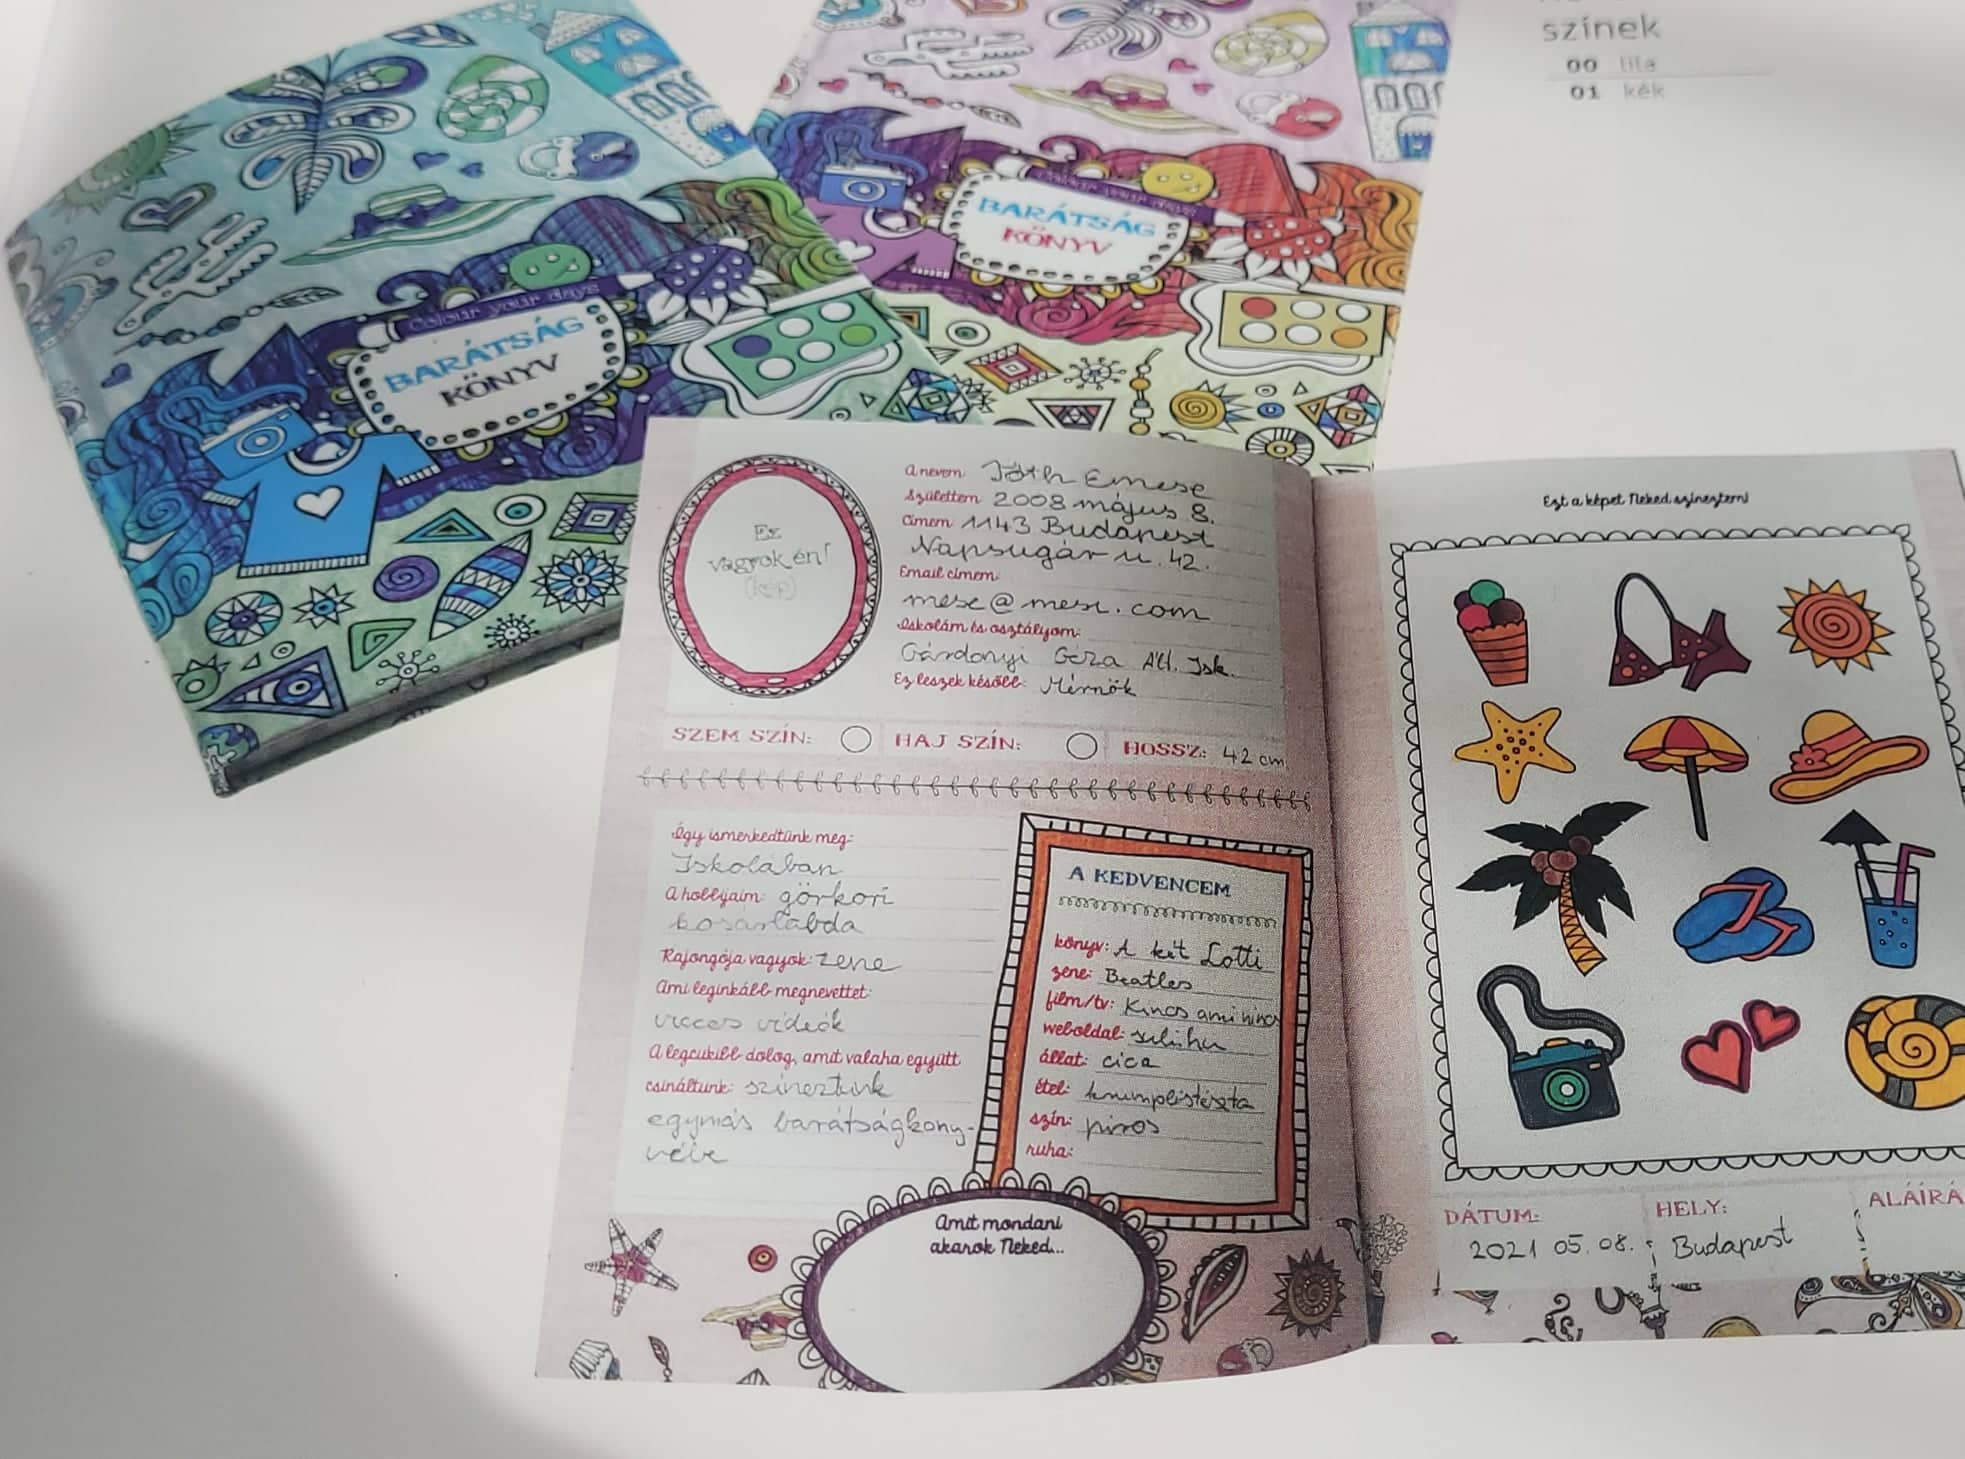 színek
00 lila
01 kék
Colour your days
BARÁTSÁG
KÖNYV
Colour your days
BARÁTSÁG
KÖNYV
Ez
vagyok én!
(kép)
A nevem: Tóth Emese
Születtem 2008 május 8.
Címem 1143 Budapest
Napsugár u. 42.
Email címem:
mese@mese.com
Iskolám és osztályom:
Gárdonyi Géza Ált. Isk.
Ez leszek később: Mérnök
SZEM SZÍN:
HAJ SZÍN:
HOSSZ: 42 cm
Így ismerkedtünk meg:
Iskolában
A hobbijaim: görkori
kosárlabda
Rajongója vagyok: zene
Ami leginkább megnevettet:
vicces videók
A legcukibb dolog, amit valaha együtt
csináltunk: színeztünk
egymás barátságköny-
vébe
A KEDVENCEM
könyv: A két Lotti
zene: Beatles
film/tv: Kincs ami nincs
weboldal:
állat: cica
étel: krumplistészta
szín: piros
ruha:
Amit mondani
akarok Neked...
Ezt a képet Neked színeztem!
DÁTUM:
2021 05.08.
HELY:
Budapest
ALÁÍRÁ